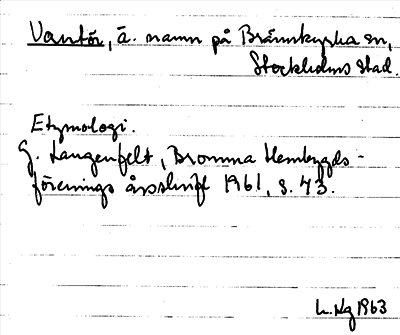 Vantör, ä. namn på Brännkyrka sn,
Stockholms stad.
Etymologi.
G. Langenfelt, Bromma Hembygds-
förenings årsskrift 1961, s. 43.
1963